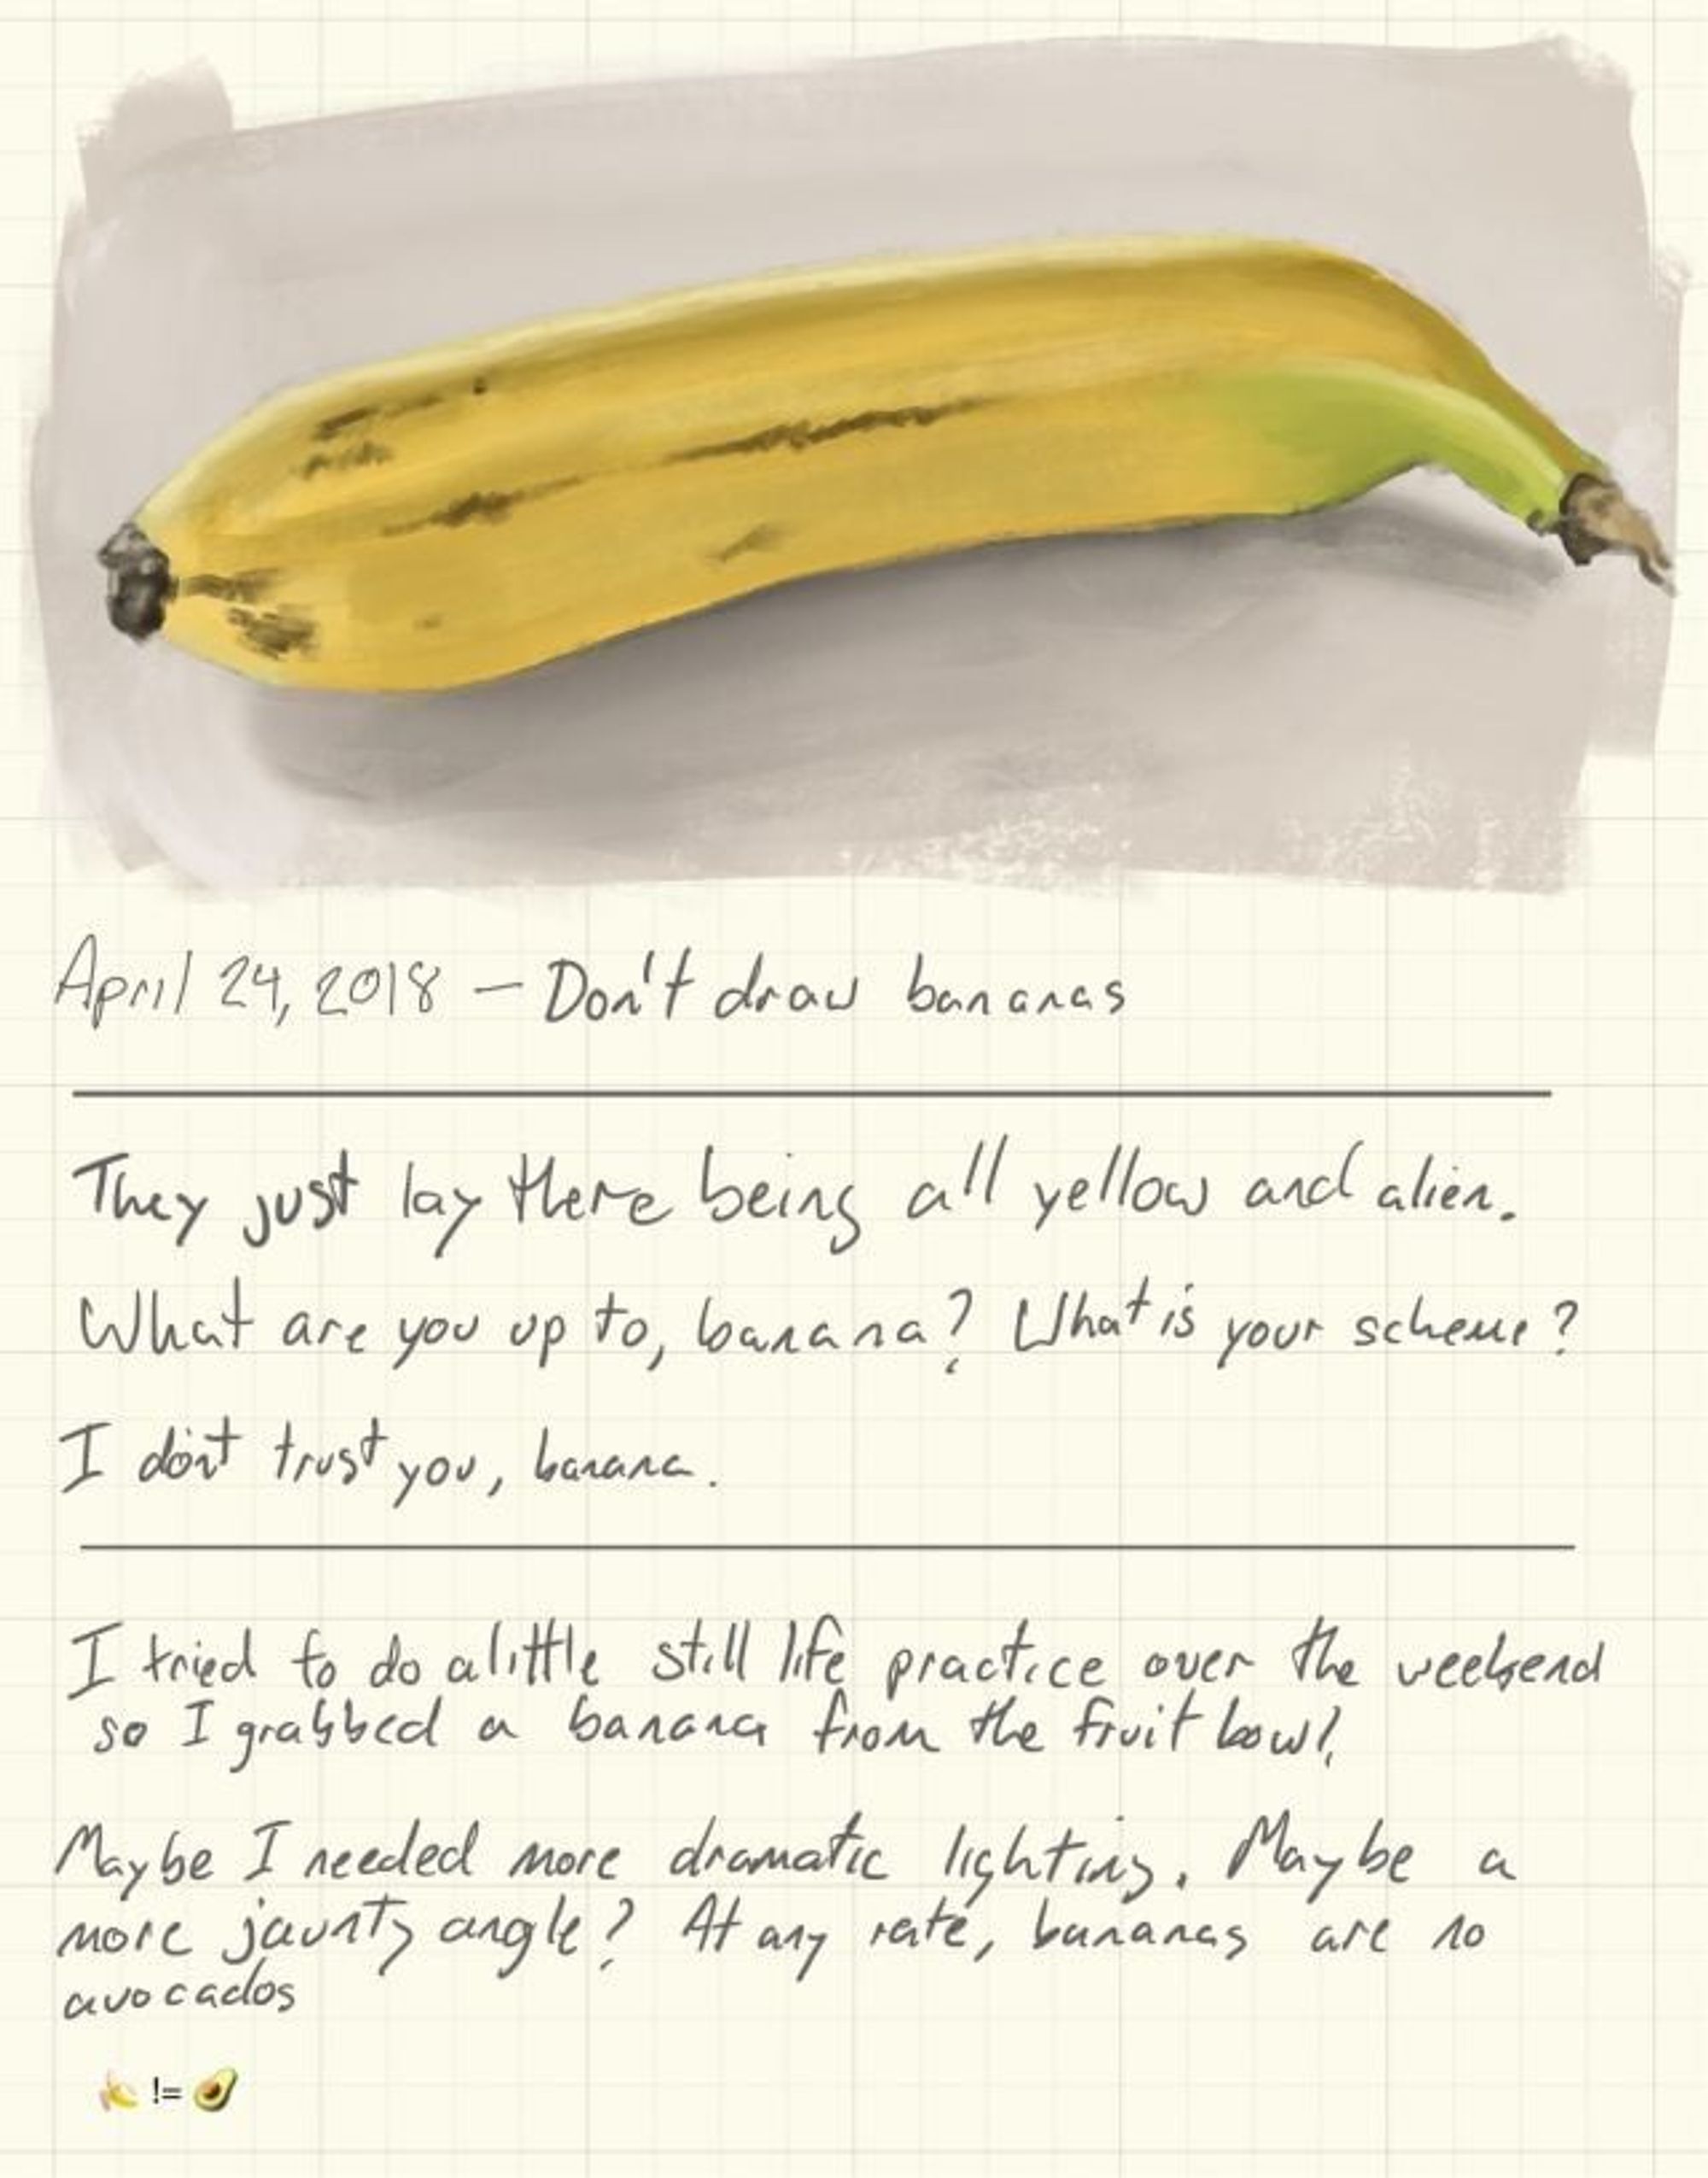 April 24, 2018 — Don't draw bananas
They just lay there being all yellow and alien.
What are you up to, banana? What is your scheme?
I don't trust you, banana.
I tried to do a little still life practice over the weekend
so I grabbed a banana from the fruit bowl.
Maybe I needed more dramatic lighting. Maybe a
more jaunty angle? At any rate, bananas are no
avocados
🍌 != 🥑